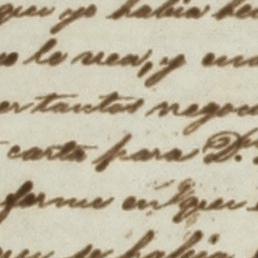 que yo habia
lo vea, y
tantos negoc
carta para Dn.
forme en que
que se habia